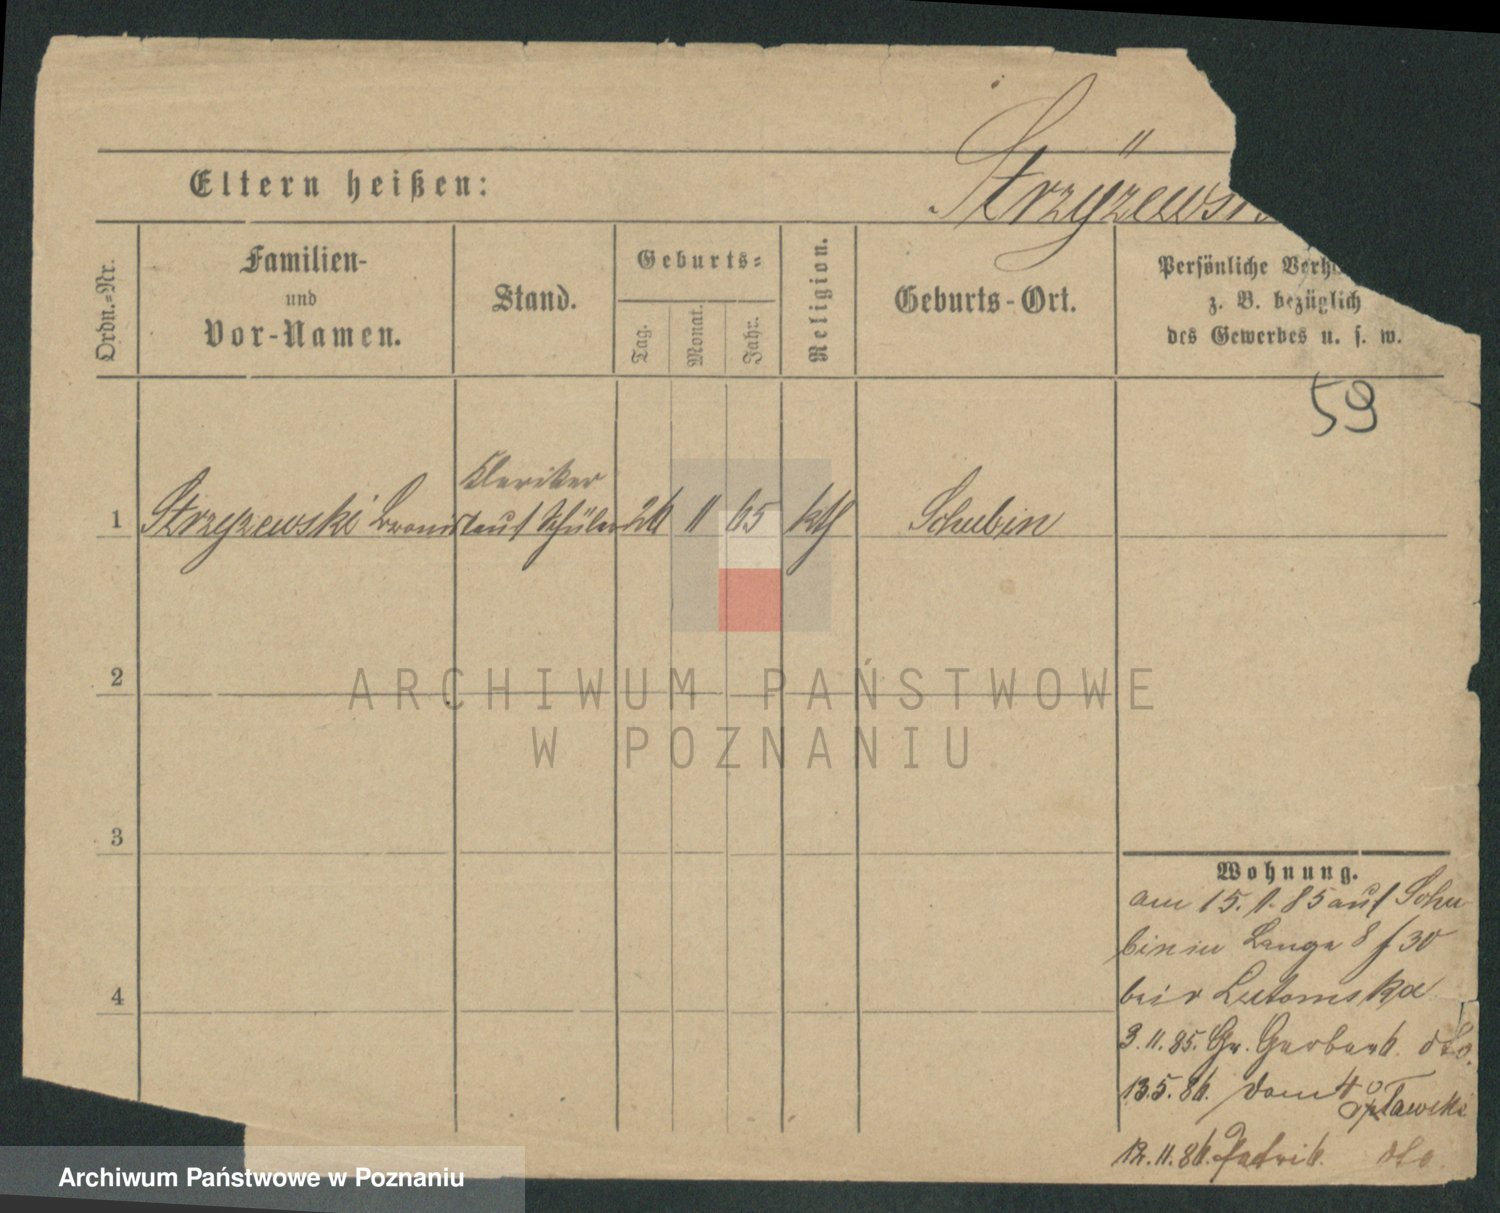 Strzyżewsk
Eltern heißen:
Ordn.=Nr.
Familien-
und
Vor-Namen.
Stand.
Geburts=
Tag.
Monat.
Jahr.
Religion.
Geburts-Ort.
Persönliche Verh
z. B. bezüglich
des Gewerbes u. s. w.
59
Kleriker
1 Strzyzewski Bronislaus Schüler 26 11 65 kth Schubin
2
3
4
Wohnung.
am 15. 1. 85 aus Schu
bin in Lange 8 f 30
bei Lutomska
3. 11. 85. Gr. Gerber 6. dto.
13. 5. 86. Dom 4
12. 11. 86. 6. dto.
ARCHIWUM PAŃSTWOWE
W POZNANIU
Archiwum Państwowe w Poznaniu